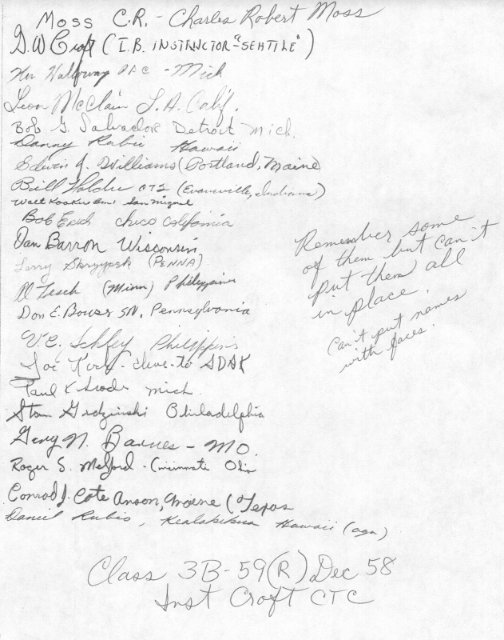 Moss C.R. - Charles Robert Moss
D.W Croft (I.B. INSTRUCTOR "SEATTLE")
Ken - Mich
Leon McClain L.A. Calif.
Bob G. Salvador Detroit Mich.
Danny Rubio Hawaii
Edwin J. Williams (Portland, Maine
Bill CT2 (Evansville, Indiana)
Walt San Miguel
Bob Erich Chico California
Dan Barron Wisconsin
Larry (PENNA)
Al Lesch (Minn) Philippin
Don E. Bowser SN, Pennsylvania
V.C. Schley Philippins
Joe Kirk - drove to ADAK
Paul K. mich
Stan Philadelphia
Gery N. Barnes - MO.
Roger S. Melford - Cincinnati Ohio
Conrad J. Cote Anson, Maine (Texas
Daniel Rubio, Kealakekua Hawaii (agn)
Remember some
of them but can't
put them all
in place.
Can't put names
with faces.
Class 3B-59(R) Dec 58
Inst Croft CTC